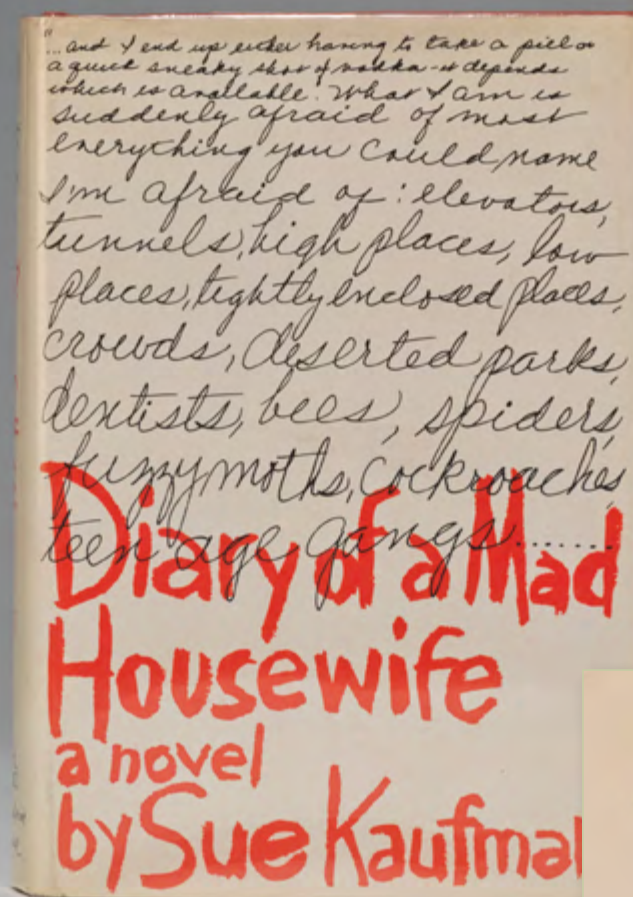 "...and I end up either having to take a pill or
a quick sneaky shot of vodka – it depends
which is available. What I am is
suddenly afraid of most
everything you could name
I'm afraid of: elevators,
tunnels, high places, low
places, tightly enclosed places,
crowds, deserted parks,
dentists, bees, spiders,
fuzzy moths, cockroaches
teen age gangs......
Diary of a Mad
Housewife
a novel
by Sue Kaufma